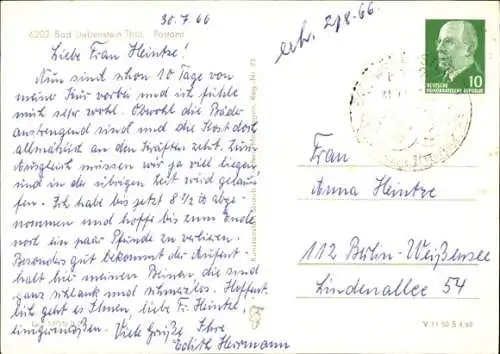 30.7.66
6202 Bad Liebenstein Thür. Postamt
Liebe Frau Heintze!
Nun sind schon 10 Tage von
meiner Kur vorbei und ich fühle
mich sehr wohl. Obwohl die Bäder
anstrengend sind und die Kost doch
allmählich an den Kräften zehrt. Zum
Ausgleich müssen wir ja viel liegen
und in der übrigen Zeit wird gelau-
fen. Ich habe bis jetzt 8 1/2 tb abge-
nommen und hoffe bis zum Ende
noch ein paar Pfunde zu verlieren.
Besonders gut bekommt der Aufent-
halt hier meinen Beinen, die sind
ganz schlank und schmerzlos. Hoffent-
lich geht es Ihnen, liebe Fr. Heintze,
einigermaßen. Viele Grüße Ihre
Edith Herrmann
erh. 2/8.66.
10
DEUTSCHE
DEMOKRATISCHE REPUBLIK
Frau
Anna Heintze
112 Berlin-Weißensee
Lindenallee 54
V 11 50 S 1/66